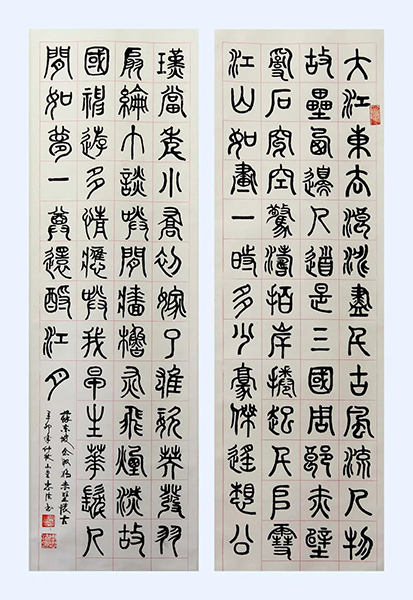 大江東去浪淘盡千古風流人物
故壘西邊人道是三國周郎赤壁
亂石穿空驚濤拍岸捲起千堆雪
江山如畫一時多少豪傑遙想公
瑾當年小喬初嫁了雄姿英發羽
扇綸巾談笑間檣櫓灰飛煙滅故
國神遊多情應笑我早生華髮人
間如夢一尊還酹江月
蘇東坡念奴嬌赤壁懷古
辛卯年仲秋